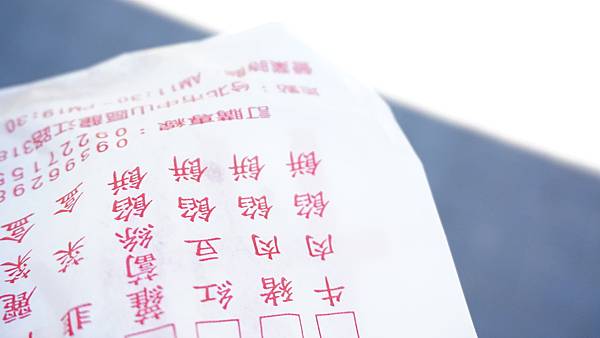 麗菜盒
韭菜盒
蘿蔔絲餡餅
紅豆餡餅
豬肉餡餅
牛肉餡餅
09396298
訂購專線：09227155
地點：台北市中山區龍江路318
營業時間 AM11:30~PM19:30